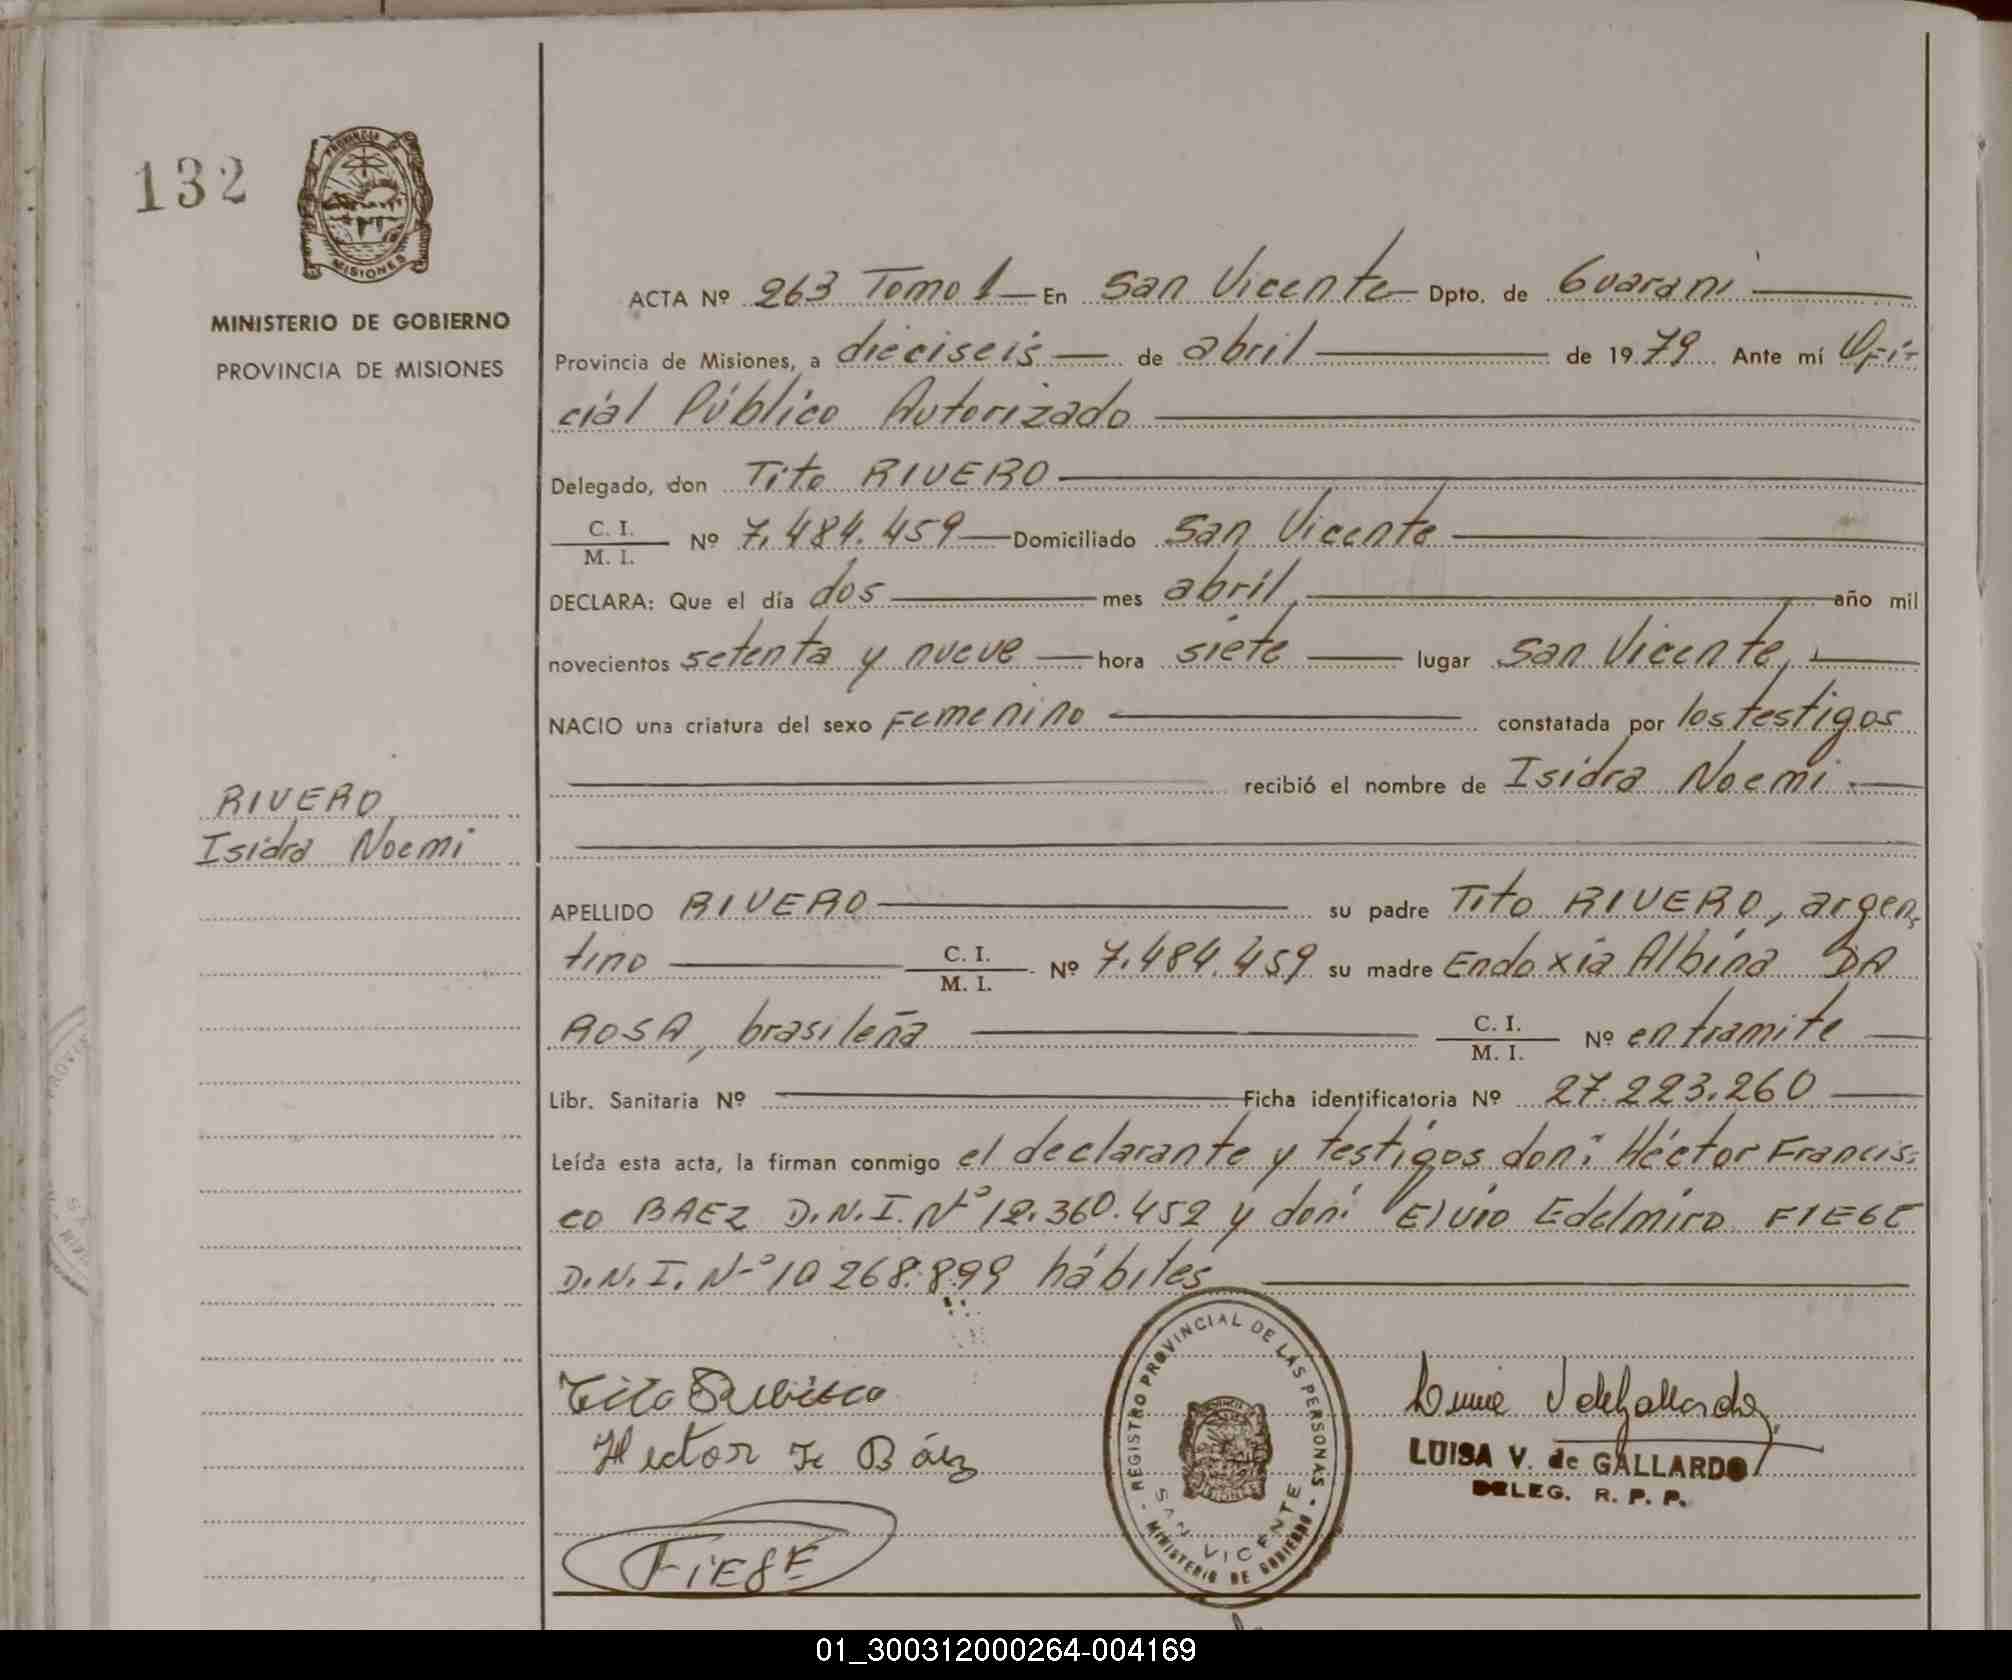 132
PROVINCIA DE
MISIONES
MINISTERIO DE GOBIERNO
PROVINCIA DE MISIONES
ACTA Nº 263 Tomo 1 En San Vicente Dpto. de Guarani
Provincia de Misiones, a dieciseis de abril de 1979 Ante mí Ofi-
cial Público Autorizado
Delegado, don Tito RIVERO
C. I.
M. I. Nº 7.484.459 Domiciliado San Vicente
DECLARA: Que el día dos mes abril año mil
novecientos setenta y nueve hora siete lugar San Vicente,
NACIO una criatura del sexo Femenino constatada por los testigos
recibió el nombre de Isidra Noemi
RIVERO
Isidra Noemi
APELLIDO RIVERO su padre Tito RIVERO, argen-
tino C. I.
M. I. Nº 7.484.459 su madre Endoxia Albina DA
ROSA, brasileña C. I.
M. I. Nº en tramite
Libr. Sanitaria Nº Ficha identificatoria Nº 27.223.260
Leída esta acta, la firman conmigo el declarante y testigos don: Héctor Francis-
co BAEZ D.N.I. Nº 12.360.452 y don: Elvio Edelmiro FIEGE
D.N.I. Nº 10.268.899 hábiles
Tito
Hector F. Báez
FIEGE
REGISTRO PROVINCIAL DE LAS PERSONAS
SAN VICENTE
MINISTERIO DE GOBIERNO
LUISA V. de GALLARDO
DELEG. R. P. P.
01_300312000264-004169